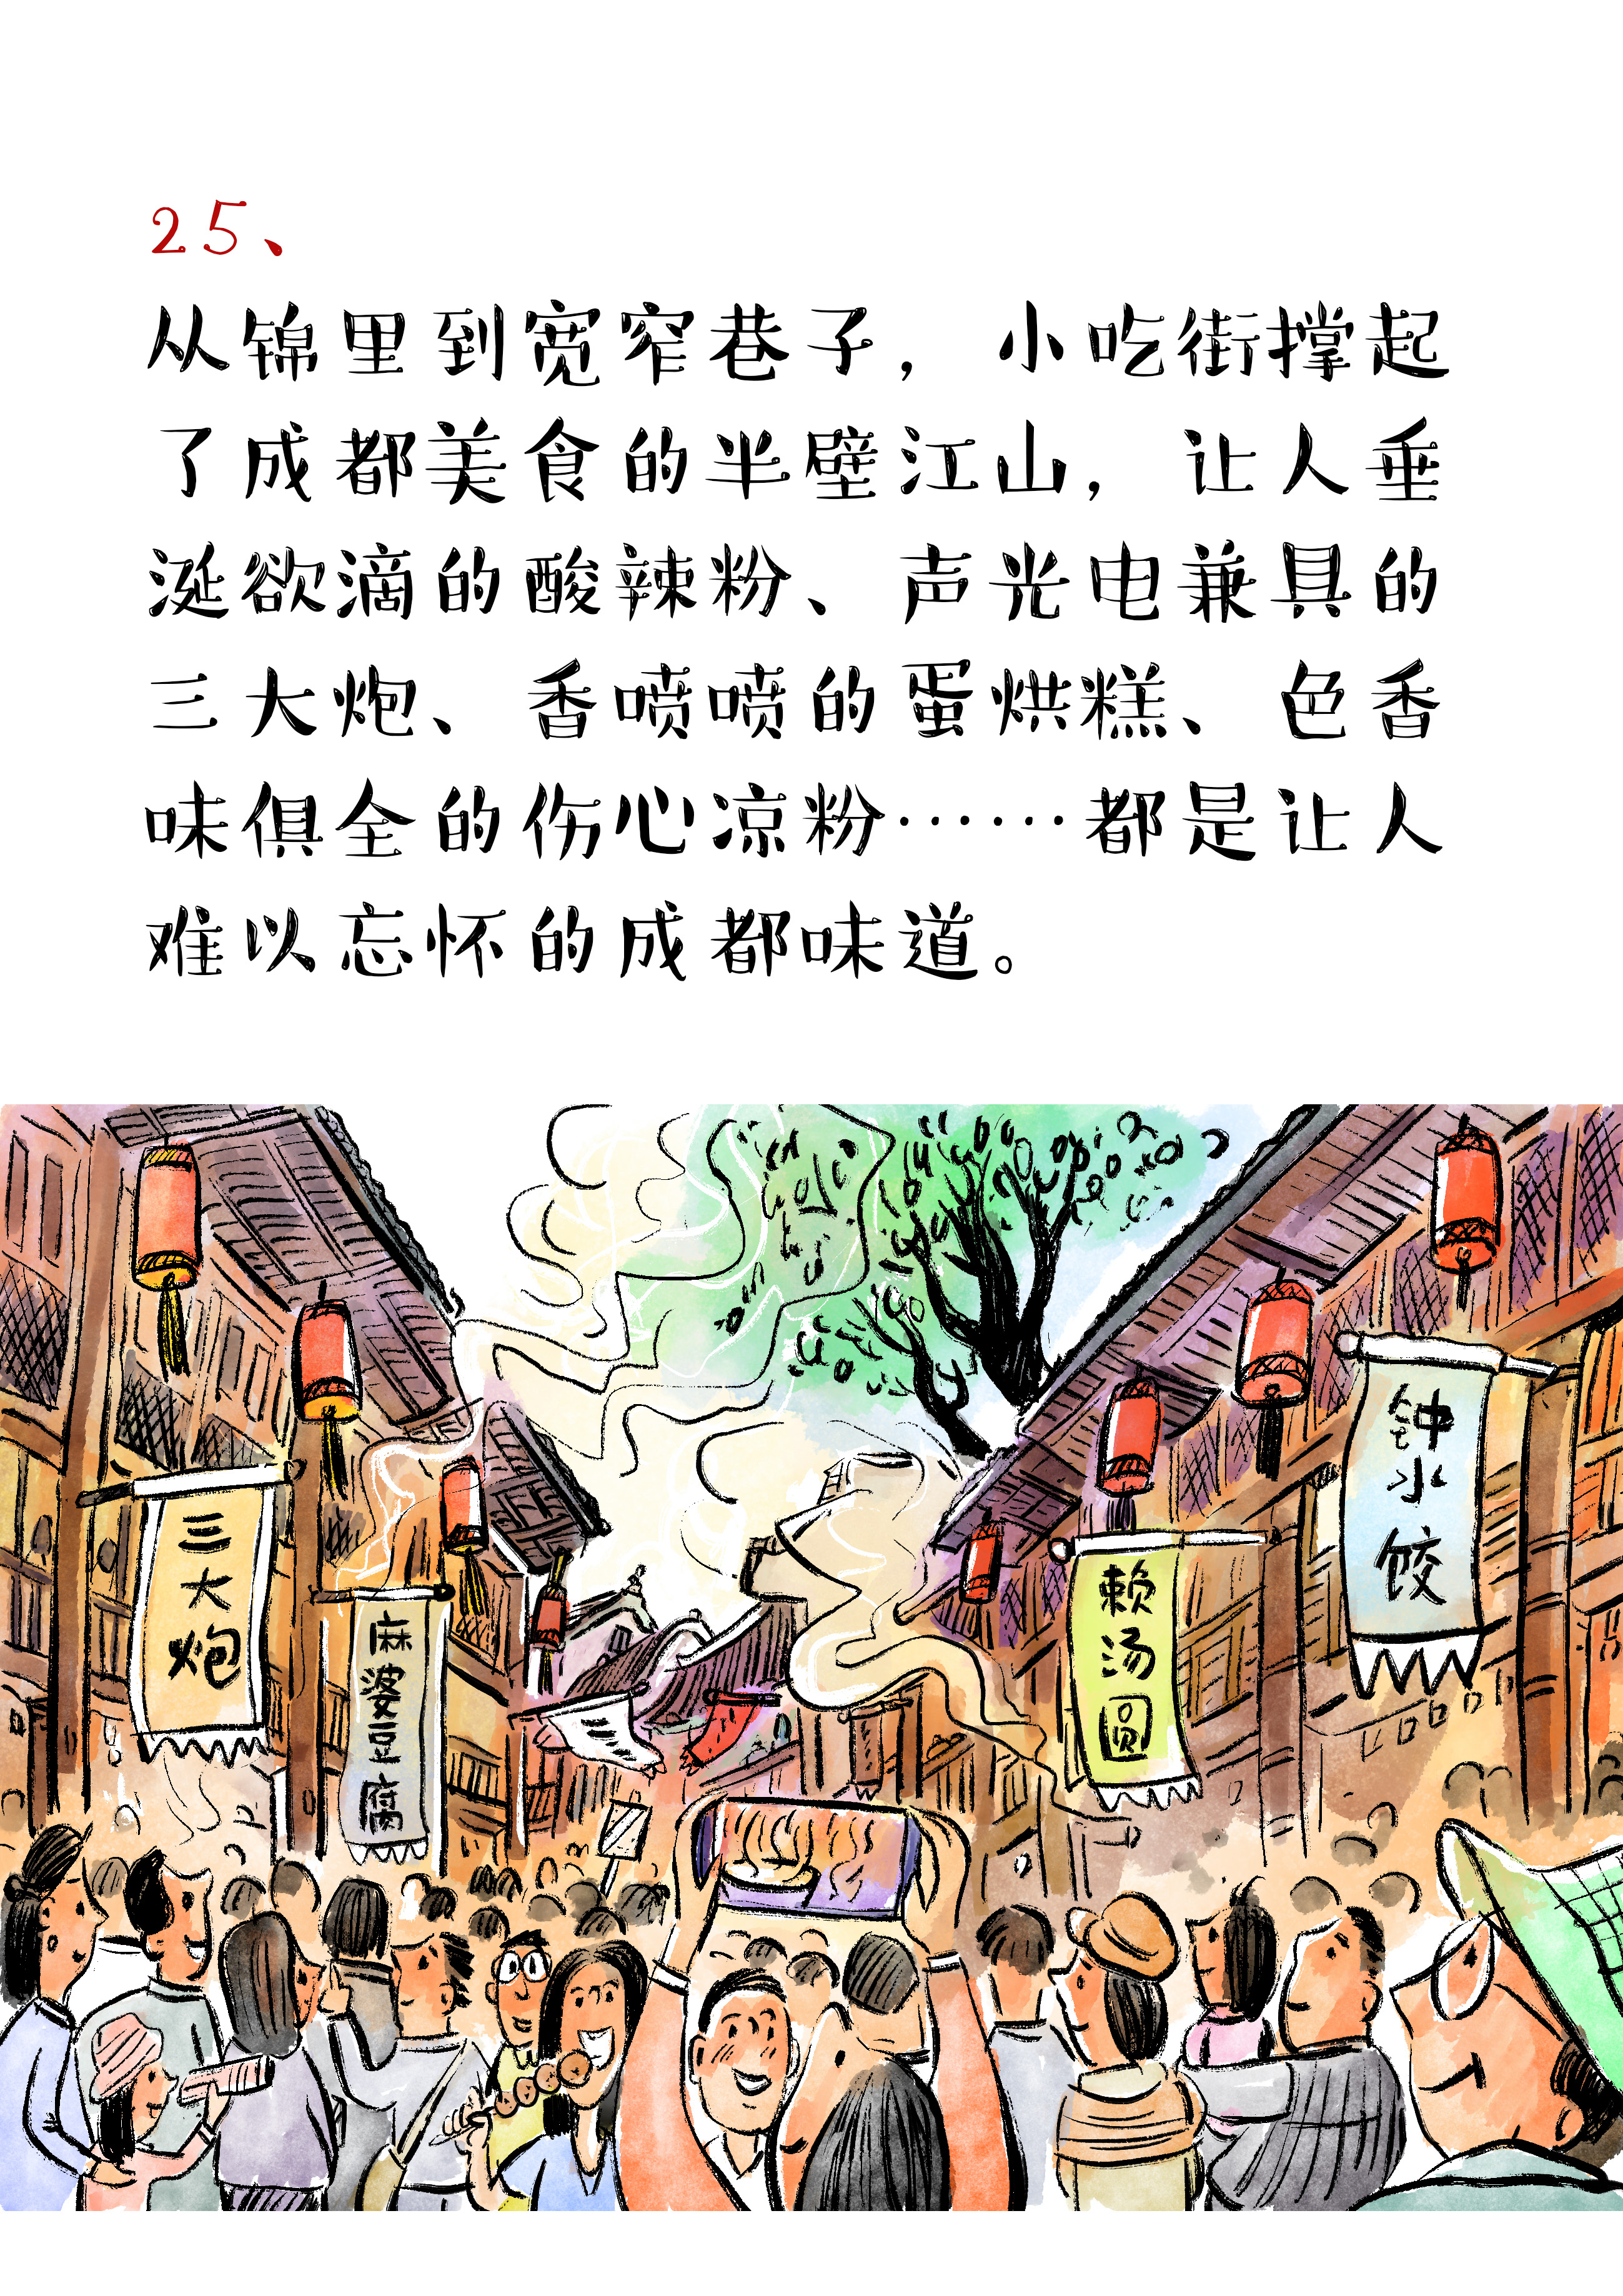 25、
从锦里到宽窄巷子，小吃街撑起
了成都美食的半壁江山，让人垂
涎欲滴的酸辣粉、声光电兼具的
三大炮、香喷喷的蛋烘糕、色香
味俱全的伤心凉粉……都是让人
难以忘怀的成都味道。
三大炮
麻婆豆腐
赖汤圆
钟水饺